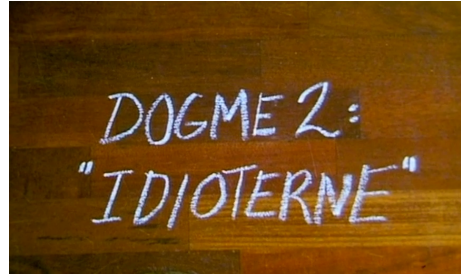 DOGME 2:
"IDIOTERNE"